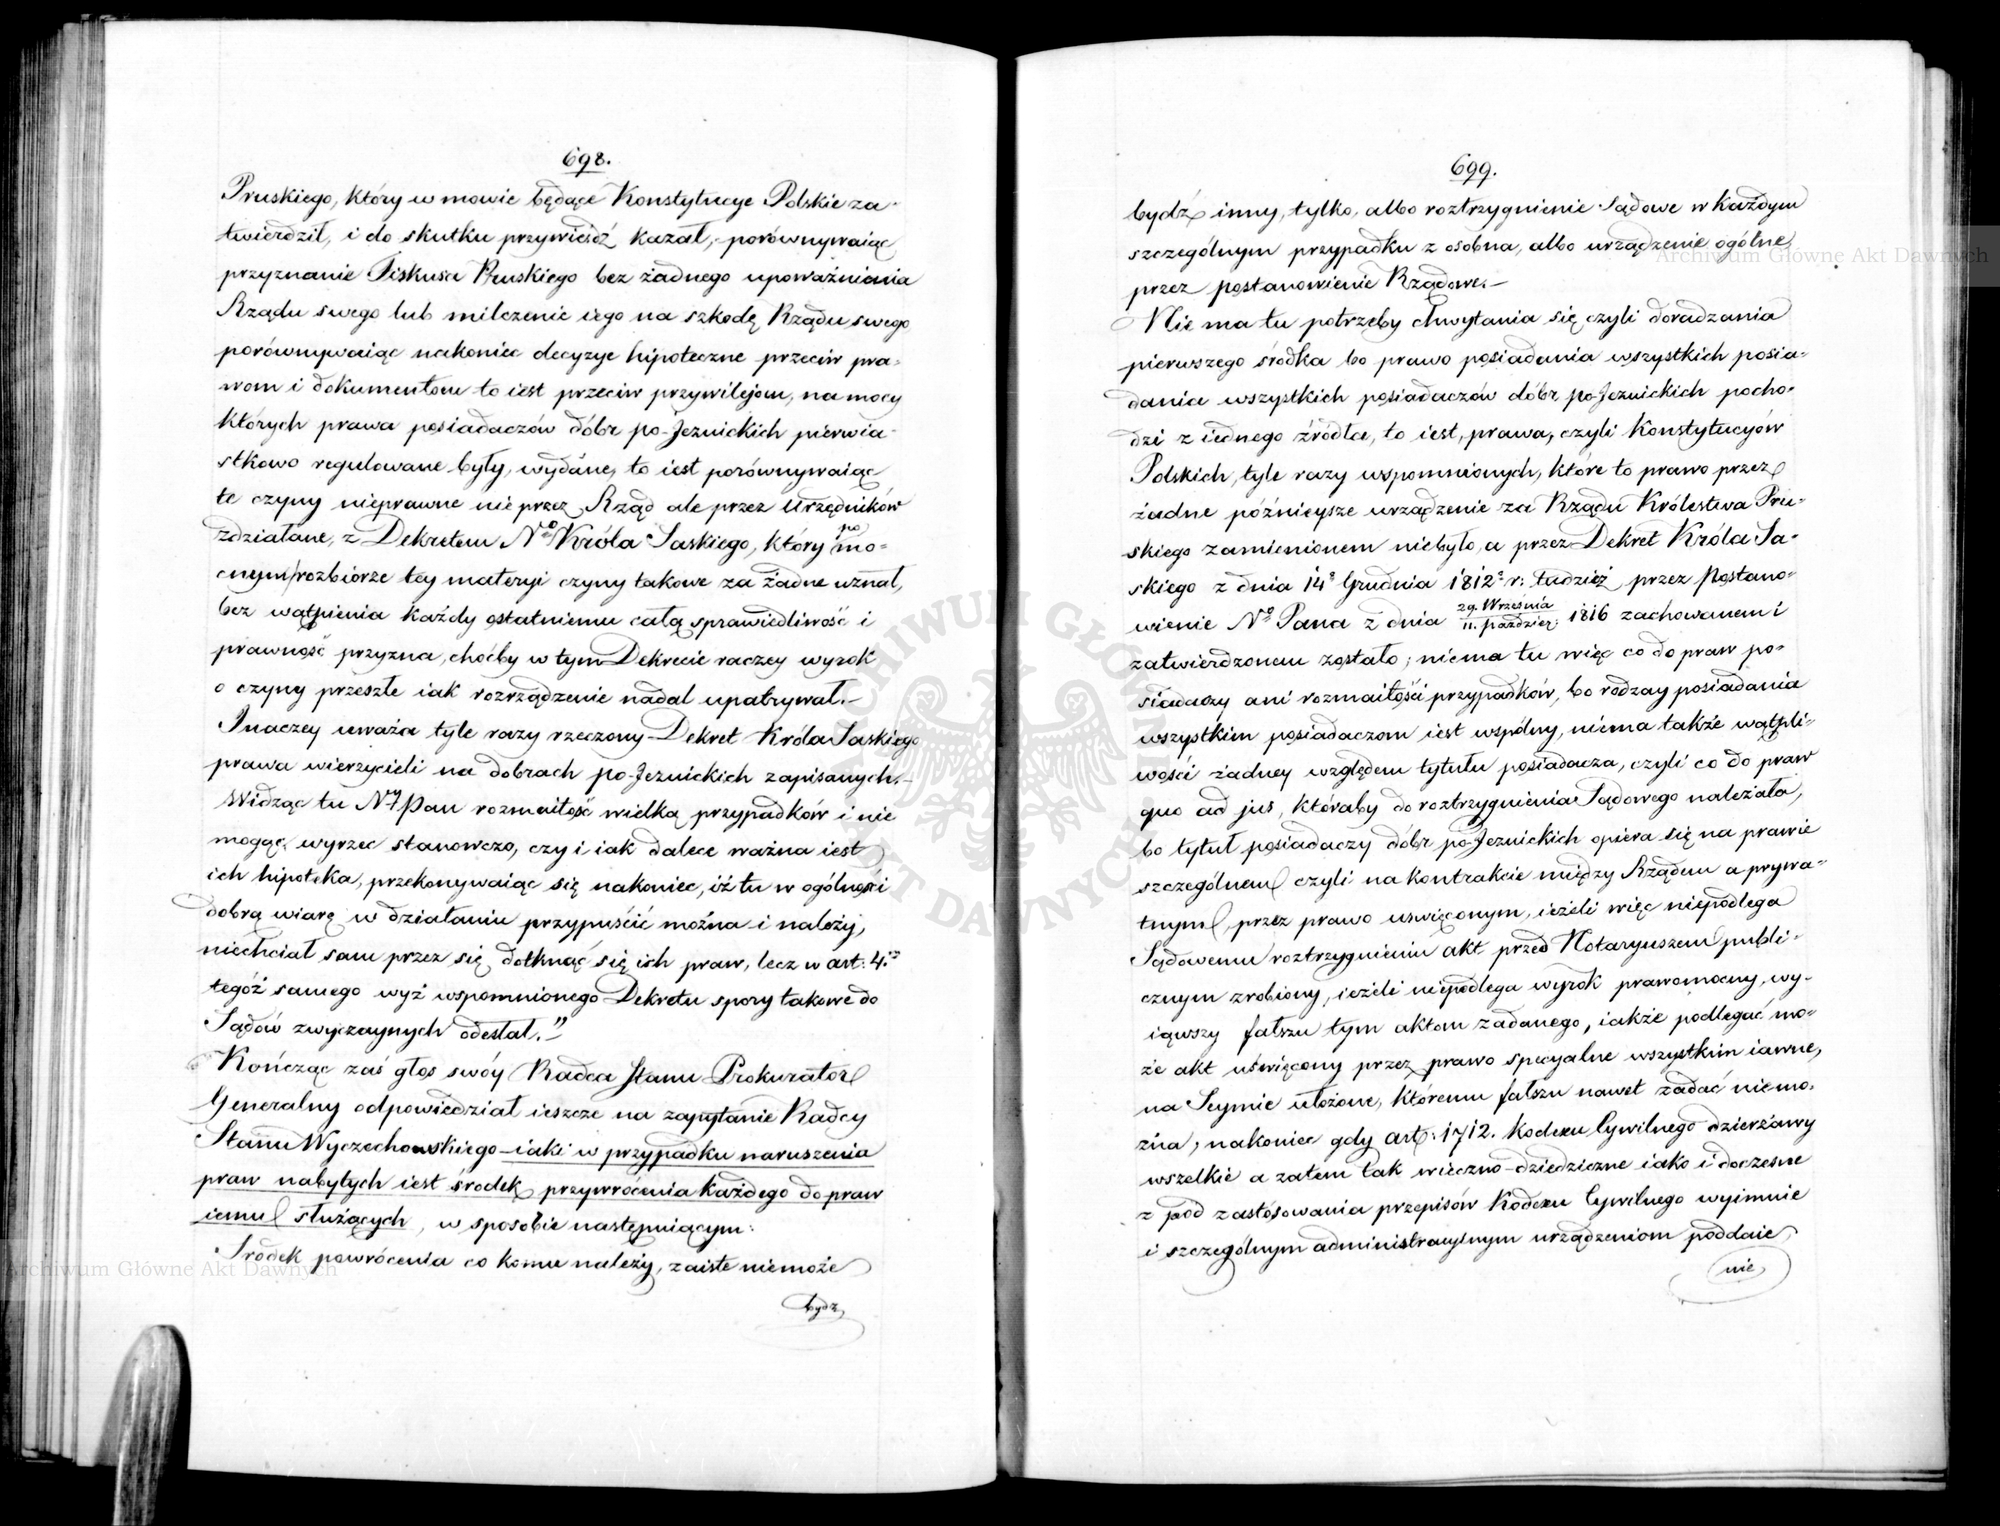 698.
Pruskiego, który w mowie będące Konstytucye Polskie za-
twierdził, i do skutku przywieśdź kazał, porównywaiąc
przyznanie Fiskusa Pruskiego bez żadnego upoważnienia
Rządu swego lub milczenie iego na szkodę Rządu swego
porównywaiąc nakoniec decyzye hipoteczne przeciw pra-
wom i dokumentom to iest przeciw przywilejom, na mocy
których prawa posiadaczów dóbr po-Jezuickich pierwia-
stkowo regulowane były, wydane, to iest porównywaiąc
te czyny nieprawne nie przez Rząd ale przez Urzędników
zdziałane, z Dekretem Nº Króla Saskiego, który po mo-
cnym rozbiorze tey materyi czyny takowe za żadne uznał,
bez wątpienia każdy ostatniemu całą sprawiedliwość i
prawność przyzna, choćby w tym Dekrecie raczey wyrok
o czyny przeszłe iak rozrządzenie nadal upatrywał.—
Inaczey uważa tyle razy rzeczony Dekret Króla Saskiego
prawa wierzycieli na dobrach po-Jezuickich zapisanych.—
Widząc tu Ny Pan rozmaitość wielką przypadków i nie
mogąc wyrzec stanowczo, czy i iak dalece ważna iest
ich hipoteka, przekonywaiąc się nakoniec, iż tu w ogólności
dobrą wiarę w działaniu przypuścić można i należy,
niechciał sam przez się dotknąć się ich praw, lecz w art: 4.
tegóż samego wyż wspomnionego Dekretu spory takowe do
Sądów zwyczaynych odesłał."
Kończąc zaś głos swóy Radca Stanu Prokurator
Generalny odpowiedział ieszcze na zapytanie Radcy
Stanu Wyczechowskiego iaki w przypadku naruszenia
praw nabytych iest środek przywrócenia każdego do praw
iemu służących, w sposobie następuiącym:
Środek powrócenia co komu należy, zaiste niemoże
bydz
699.
bydź inny, tylko, albo roztrzygnienie Sądowe w każdym
szczególnym przypadku z osobna, albo urządzenie ogólne
przez postanowienie Rządowe.—
Nie ma tu potrzeby chwytania się czyli doradzania
pierwszego środka bo prawo posiadania wszystkich posia-
dania wszystkich posiadaczów dóbr po-Jezuickich pocho-
dzi z iednego źródła, to iest, prawa, czyli Konstytucyów
Polskich, tyle razy wspomnionych, które to prawo przez
żadne późnieysze urządzenie za Rządu Królestwa Pru-
skiego zamienionem niebyło, a przez Dekret Króla Sa-
skiego z dnia 14º Grudnia 1812º r: tudzież przez Postano-
wienie Nº Pana z dnia 29. Września / 11. Paździer: 1816 zachowanem i
zatwierdzonem zostało; niema tu więc co do praw po-
siadaczy ani rozmaitości przypadków, bo rodzay posiadania
wszystkim posiadaczom iest wspólny, niema także wątpli-
wości żadney względem tytułu posiadacza, czyli co do praw
quo ad jus, któraby do roztrzygnienia Sądowego należała,
bo tytuł posiadaczy dóbr po-Jezuickich opiera się na prawie
szczególnem czyli na kontrakcie między Rządem a prywa-
tnym, przez prawo uswięconym, ieżeli więc niepodlega
Sądowemu roztrzygnieniu akt przed Notaryuszem publi-
cznym zrobiony, ieżeli niepodlega wyrok prawomocny, wy-
iąwszy fałszu tym aktom zadanego, iakże podlegać mo-
że akt uświęcony przez prawo specyalne wszystkim iawne,
na Seymie ułożone, któremu fałszu nawet zadać niemo-
żna; nakoniec gdy art: 1712. Kodexu Cywilnego dzierżawy
wszelkie a zatem tak wieczno-dziedziczne iako i doczesne
z pod zastósowania przepisów Kodexu Cywilnego wyimuie
i szczególnym administracyinym urządzeniom poddaie,
nie
Archiwum Główne Akt Dawnych
Archiwum Główne Akt Dawnych
ARCHIWUM GŁÓWNE AKT DAWNYCH